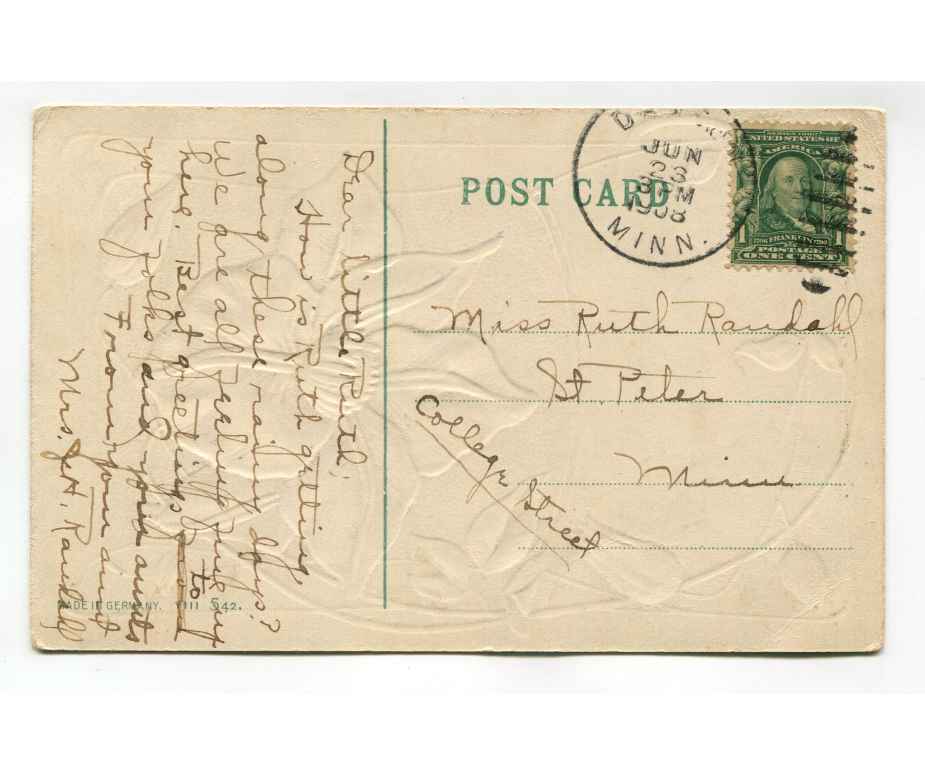 Dear little Ruth,
How is Ruth getting
along these rainy days?
We are all feeling fine out
here. Best greetings to
your folks and your aunts
From your aunt
Mrs. J.H. Randahl
MADE IN GERMANY. VIII 542.
POST CARD
JUN
23
8 PM
1908
MINN.
SERIES 1902
UNITED STATES OF
AMERICA
1 FRANKLIN 1
POSTAGE
ONE CENT
Miss Ruth Randahl
St. Peter
Minn
College Street